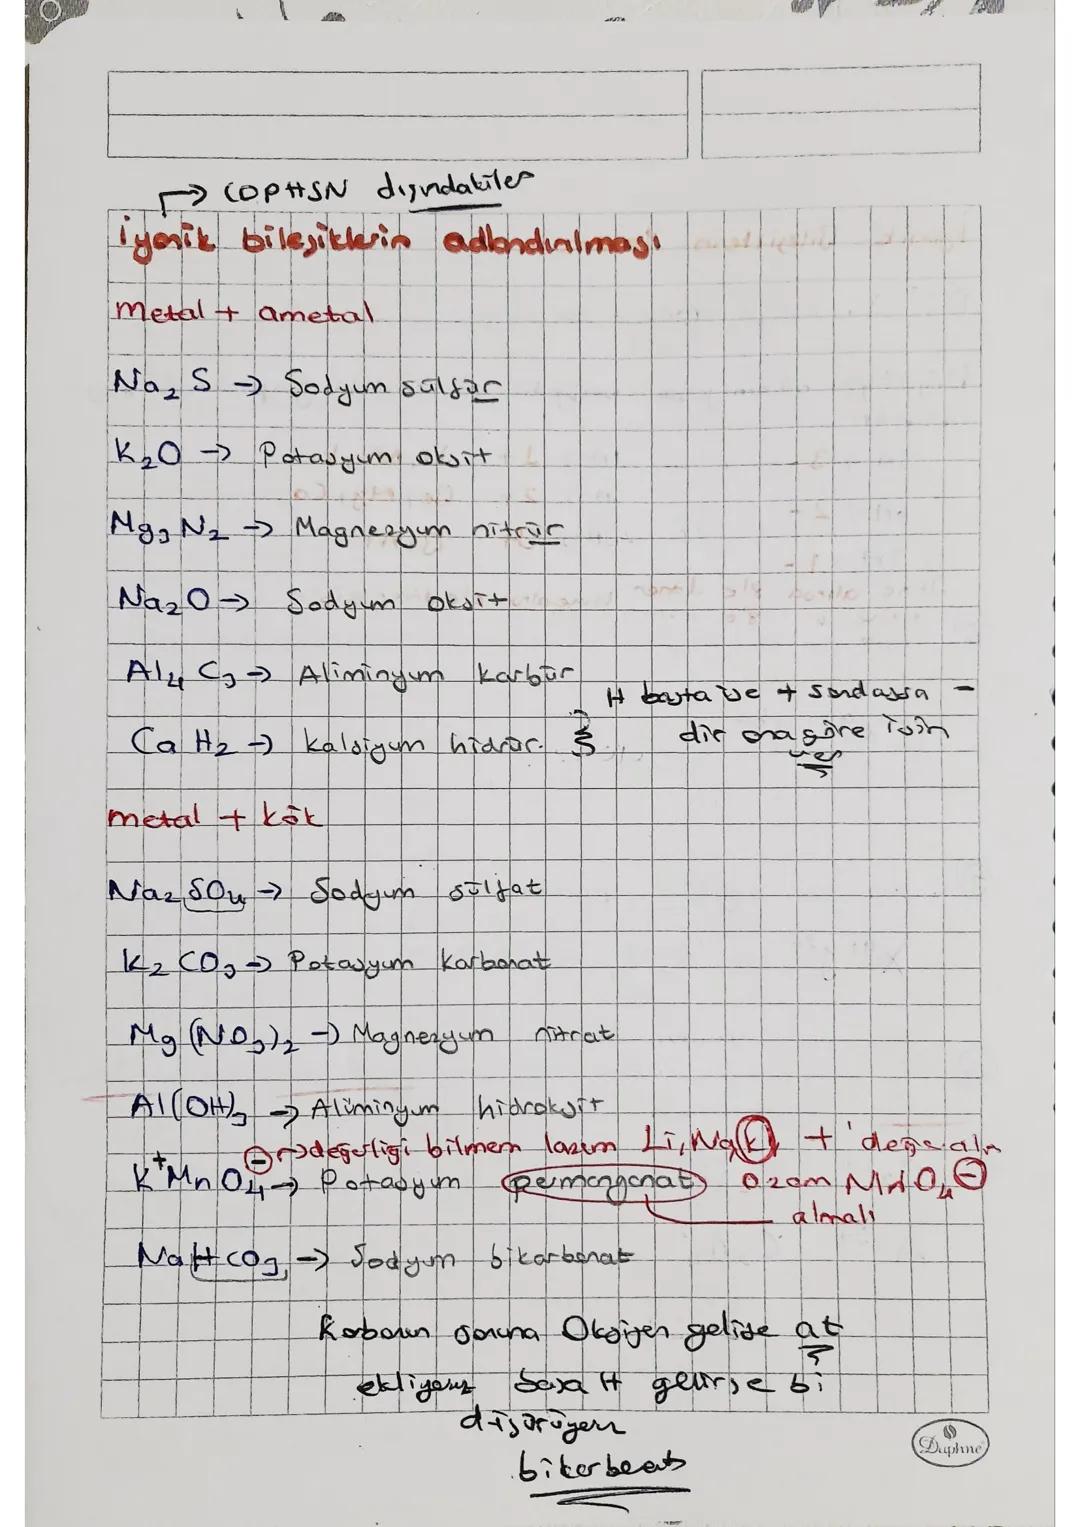 → COPHSN dışındakiler
İyonik bileşiklerin adlandırılması
Metal + ametal
Na₂S → Sodyum sülfür
K₂O → Potasyum oksit
Mg₃N₂ → Magnezyum nitrür
Na₂O → Sodyum oksit
Al₄C₃ → Aliminyum karbür
H başta ise + sondaysa -
CaH₂ → kalsiyum hidrür.
dir ona göre isin
ver
metal + kök
Na₂SO₄ → Sodyum sülfat
K₂CO₃ → Potasyum karbonat
Mg(NO₃)₂ → Magnezyum nitrat
Al(OH)₃ → Alüminyum hidroksit
⊖ → değerliği bilmem lazım Li, Na, K + değe. alır
K⁺MnO₄ → Potasyum pemanganat o zam MnO₄⊖
almalı
NaHCO₃ → Sodyum bikarbonat
Karbonun sonuna Oksijen gelirse at
ekliyoruz başa H gelirse bi
düşürüyoruz
bikerbeat
Daphne